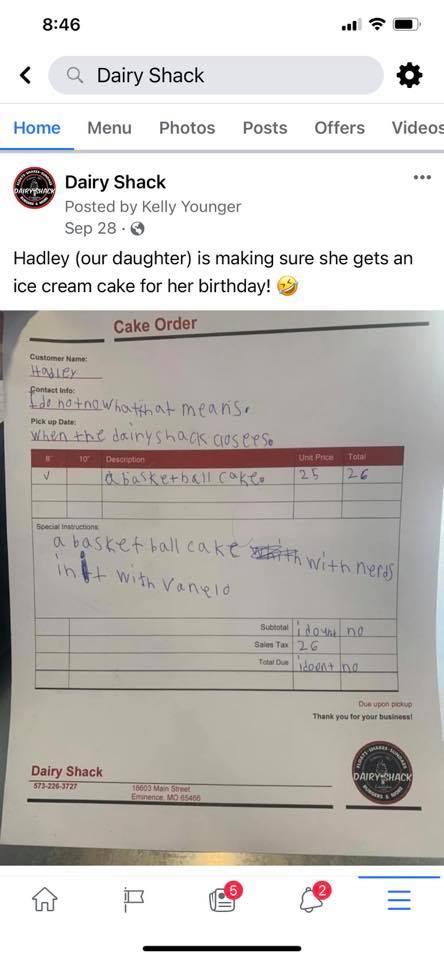 8:46
Dairy Shack
Home Menu Photos Posts Offers Videos
Dairy Shack
Posted by Kelly Younger
Sep 28
Hadley (our daughter) is making sure she gets an
ice cream cake for her birthday! 🤣
Cake Order
Customer Name:
Hadley
Contact Info:
I do not now what that means.
Pick up Date:
when the dairy shack closees.
8" 10" Description Unit Price Total
✓ a basketball cake. 25 26
Special Instructions:
a basket ball cake with nerds
in it with vanelo
Subtotal i dount no
Sales Tax 26
Total Due idoent no
Due upon pickup
Thank you for your business!
Dairy Shack
573-226-3727
18603 Main Street
Eminence, MO 65466
DAIRY SHACK
5
2